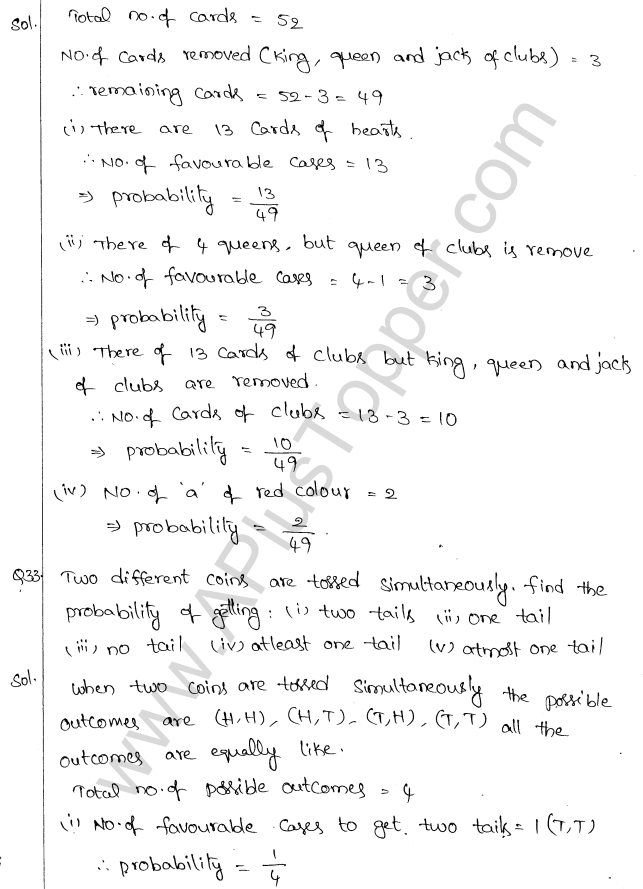 Sol. Total no. of cards = 52
NO. of cards removed (king, queen and jack of clubs) = 3
∴ remaining cards = 52-3 = 49
(i) There are 13 cards of hearts.
∴ NO. of favourable cases = 13
⇒ probability = 13/49
(ii) There of 4 queens, but queen of clubs is remove
∴ NO. of favourable cases = 4-1 = 3
⇒ probability = 3/49
(iii) There of 13 cards of clubs but king, queen and jack
of clubs are removed.
∴ NO. of cards of clubs = 13-3 = 10
⇒ probability = 10/49
(iv) NO. of 'a' of red colour = 2
⇒ probability = 2/49.
Q33. Two different coins are tossed simultaneously. find the
probability of getting: (i) two tails (ii) one tail
(iii) no tail (iv) atleast one tail (v) atmost one tail
Sol. When two coins are tossed simultaneously the possible
outcomes are (H,H), (H,T), (T,H), (T,T) all the
outcomes are equally like.
Total no. of possible outcomes = 4
(i) NO. of favourable cases to get. two tails = 1 (T,T)
∴ probability = 1/4
www.APlusTopper.com